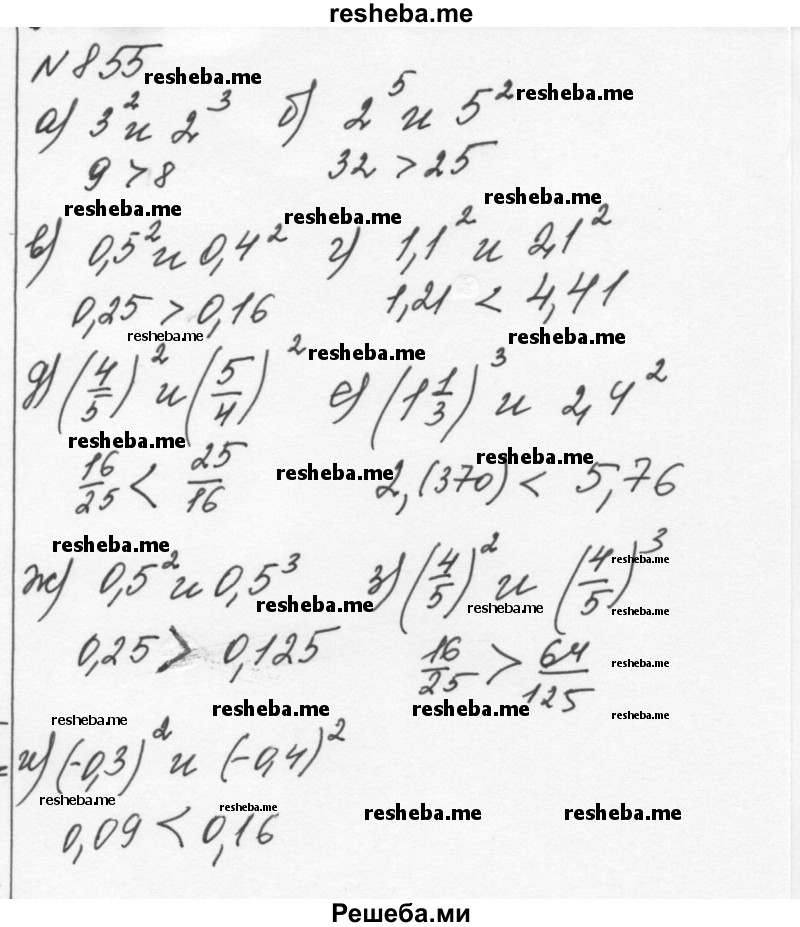 resheba.me
№ 855 resheba.me
а) 3² и 2³ б) 2⁵ и 5² resheba.me
9 > 8 32 > 25
resheba.me resheba.me resheba.me
в) 0,5² и 0,4² г) 1,1² и 2,1²
0,25 > 0,16 1,21 < 4,41
resheba.me resheba.me
д) (4/5)² и (5/4)² resheba.me е) (1 1/3)³ и 2,4²
resheba.me
16/25 < 25/16 resheba.me 2,(370) < 5,76 resheba.me
resheba.me
ж) 0,5² и 0,5³ з) (4/5)² и (4/5)³ resheba.me
resheba.me resheba.me resheba.me
0,25 > 0,125 16/25 > 64/125 resheba.me
resheba.me resheba.me resheba.me resheba.me
и) (-0,3)² и (-0,4)²
resheba.me resheba.me resheba.me resheba.me
0,09 < 0,16
Решеба.ми